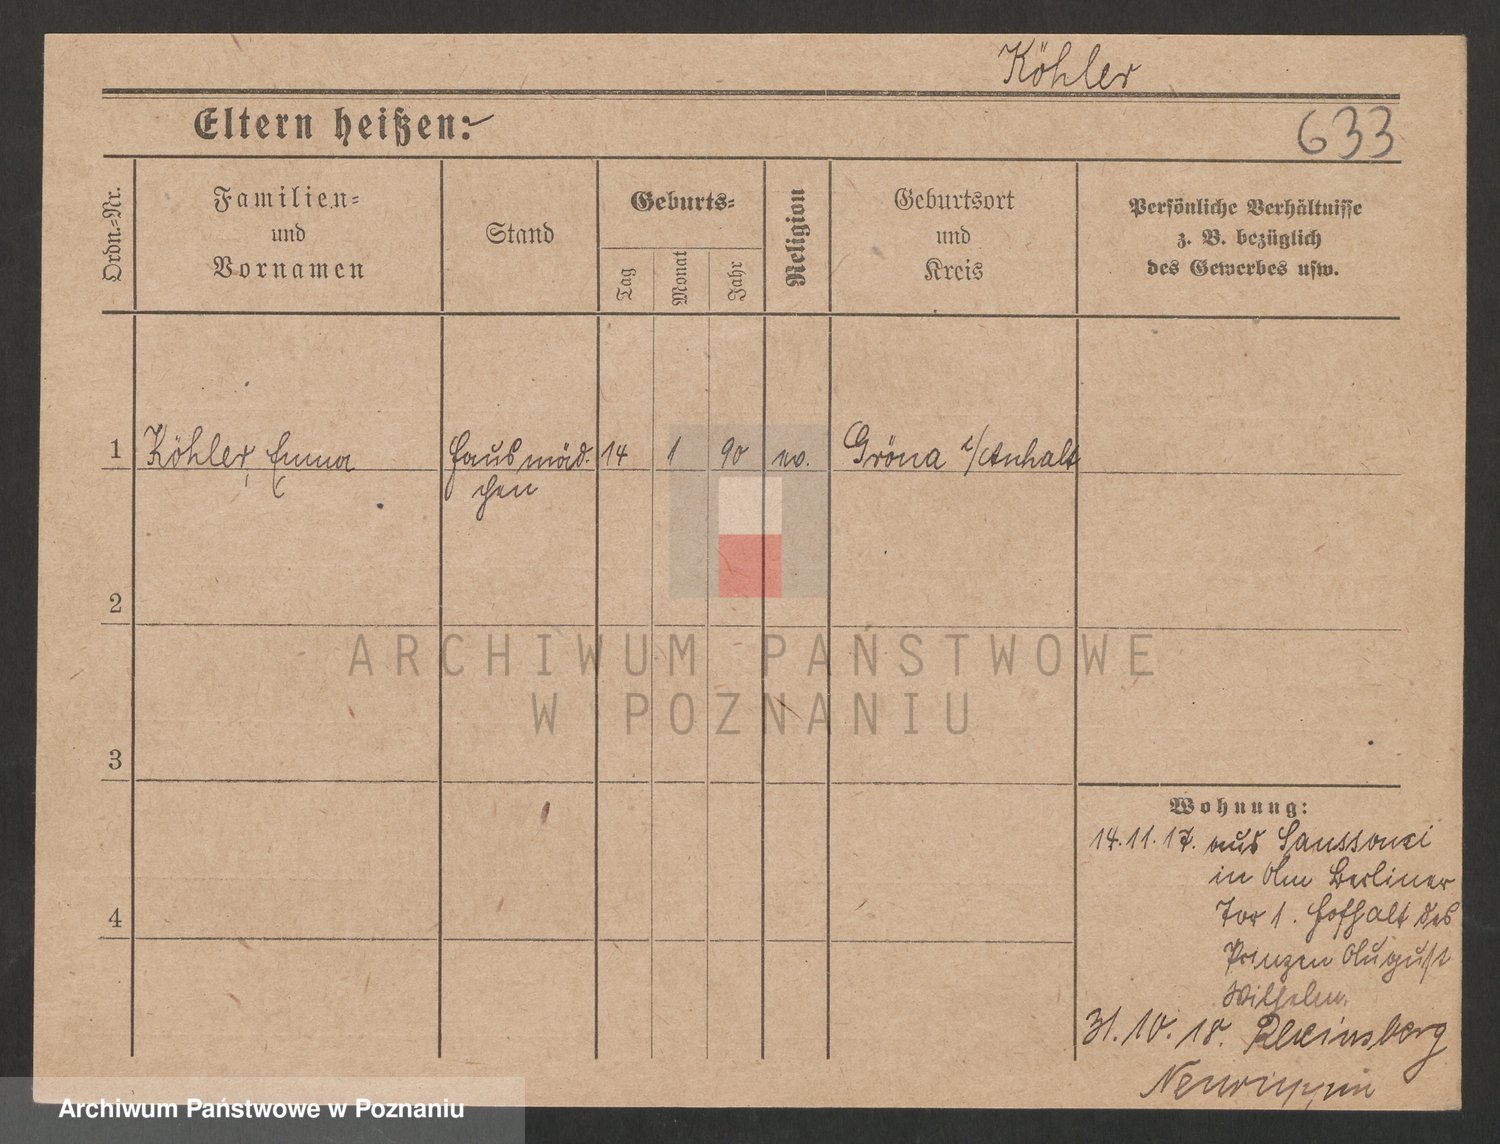 Köhler
Eltern heißen:
633
Ordn.-Nr.
Familien-
und
Vornamen
Stand
Geburts-
Tag
Monat
Jahr
Religion
Geburtsort
und
Kreis
Persönliche Verhältnisse
z. B. bezüglich
des Gewerbes usw.
1 Köhler, Emma Hausmäd. 14 1 90 ev. Gröna i/Anhalt
chen
2
ARCHIWUM PAŃSTWOWE
W POZNANIU
3
4
Wohnung:
14.11.17. aus Sanssouci
in Am Berliner
Tor 1. Hofhalt des
Prinzen August
Wilhelm.
31.10.18. Rheinsberg
Neuruppin
Archiwum Państwowe w Poznaniu